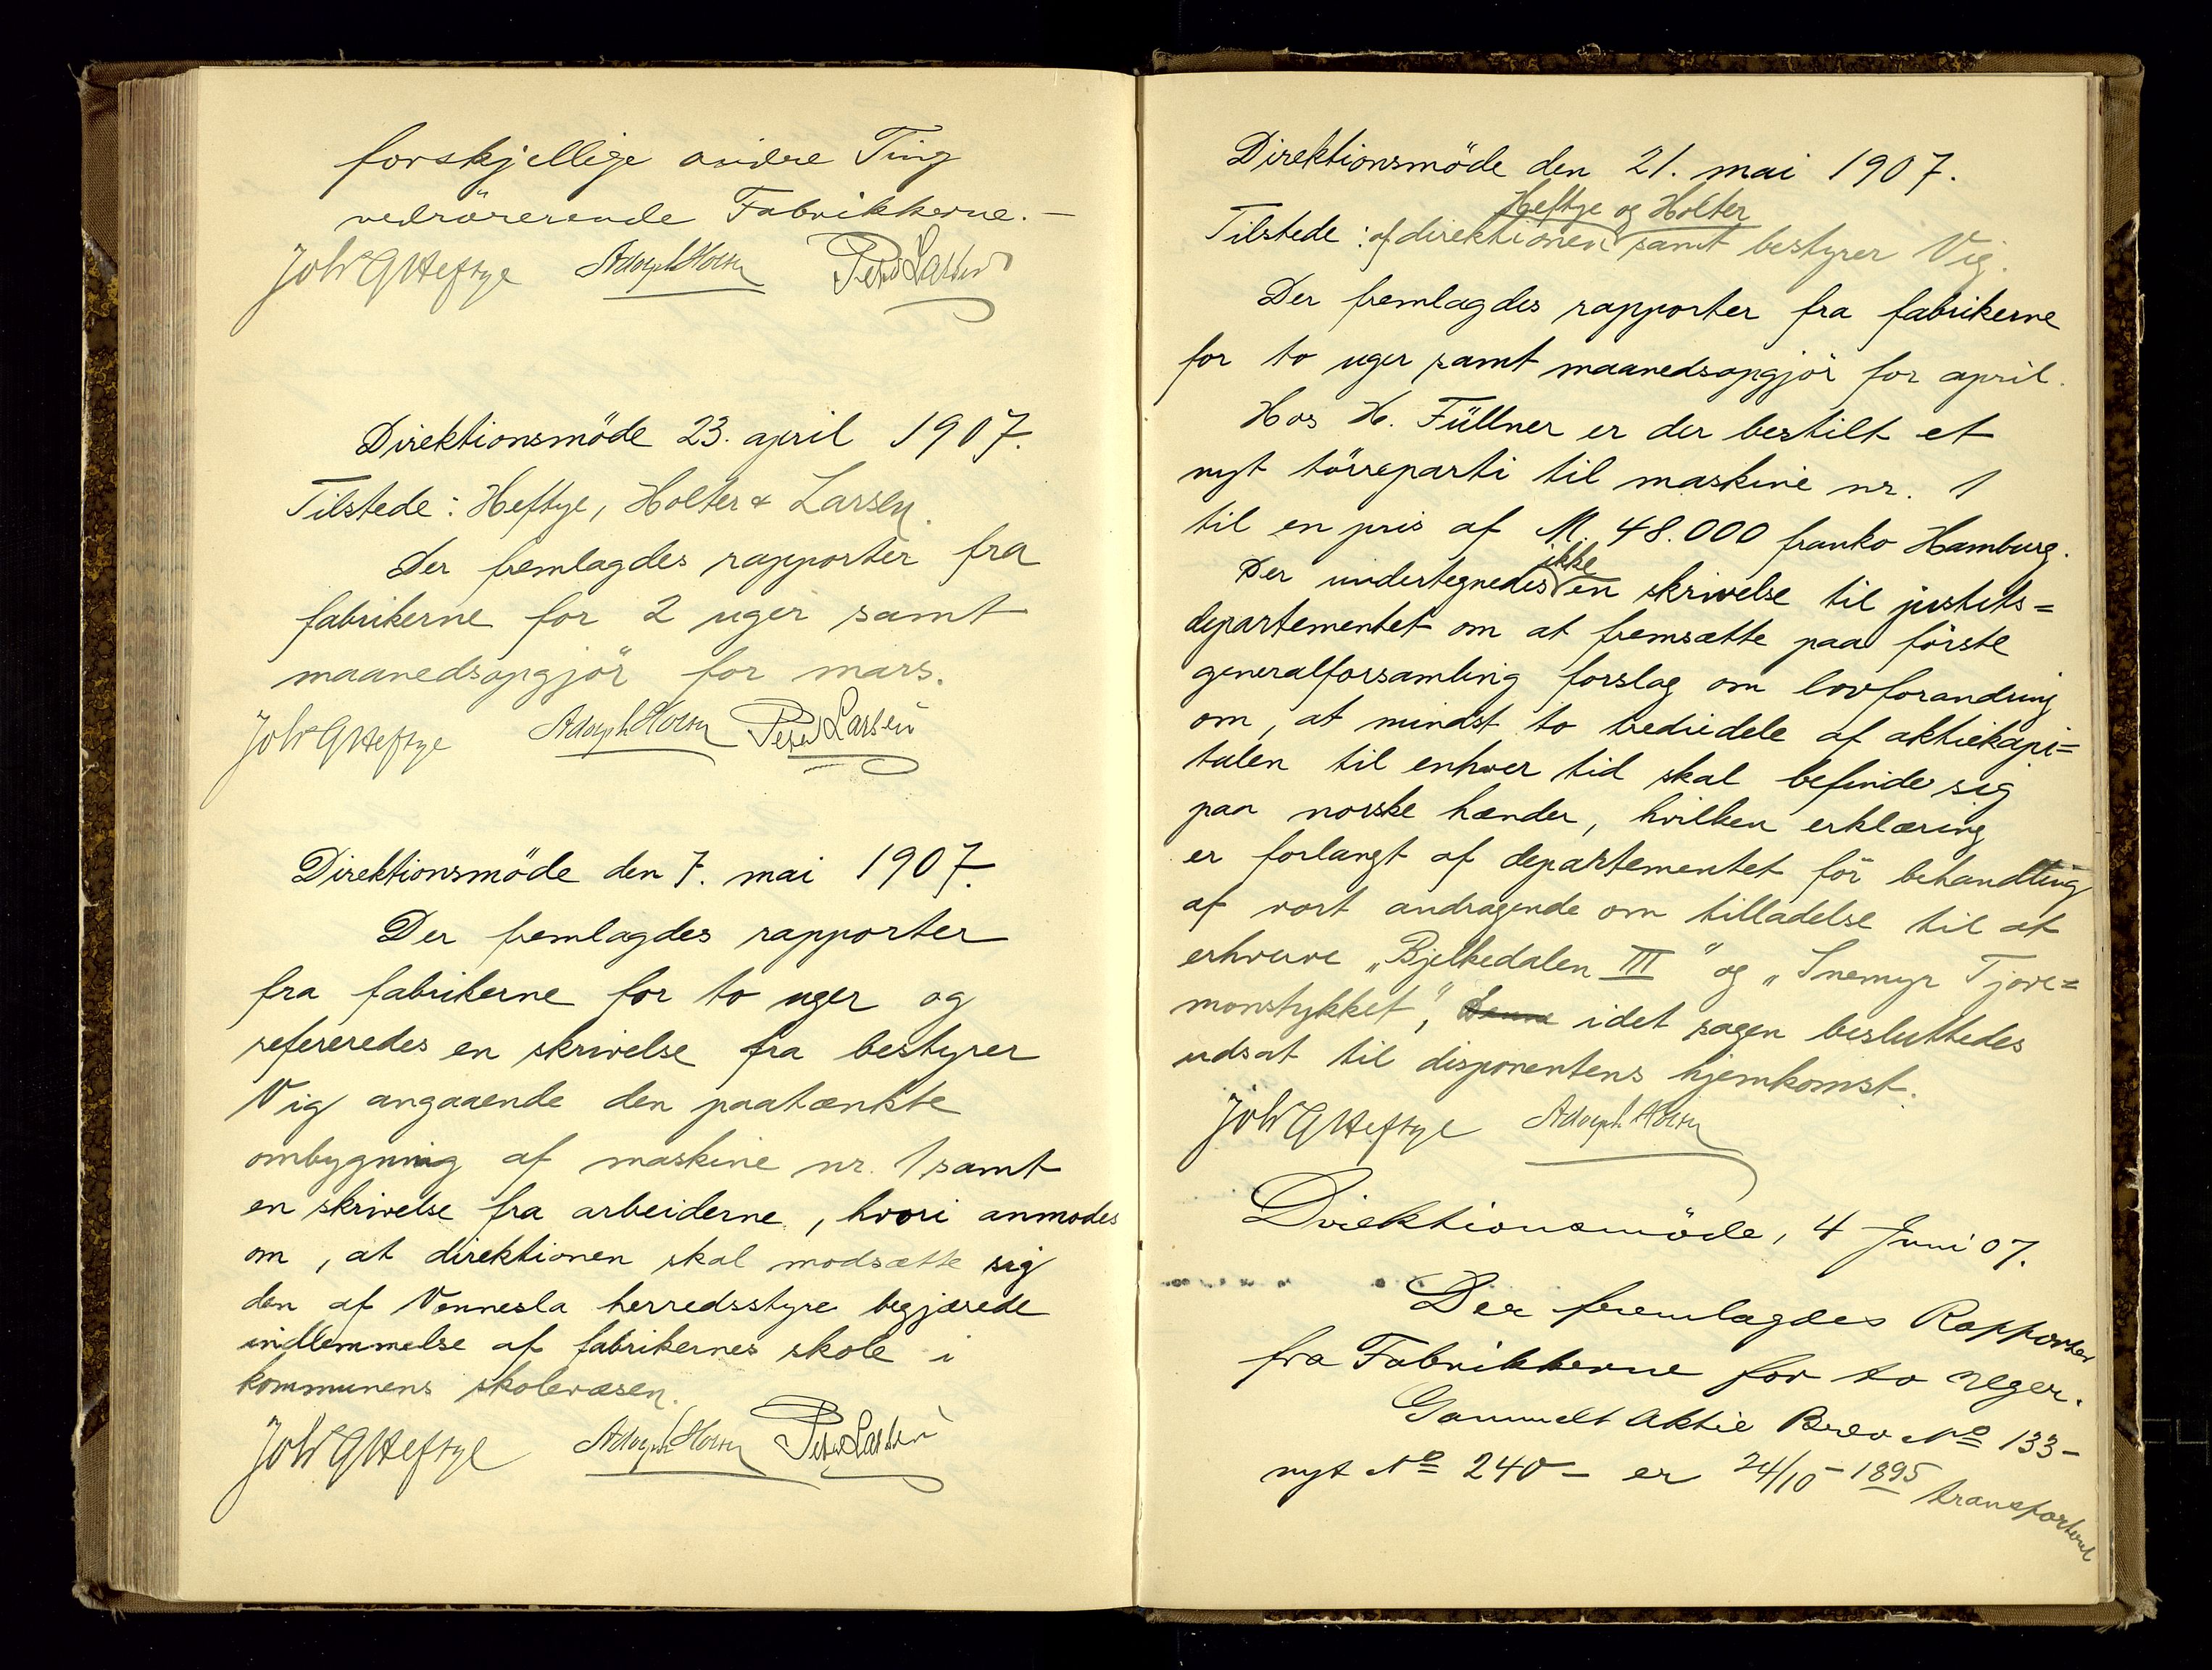 forskjellige andre Ting
vedrörerende Fabrikkerne. —
Joh G Heftye Adolph Holter Peter Larsen
Direktionsmöde 23. april 1907.
Tilstede: Heftye, Holter & Larsen.
Der fremlagdes rapporter fra
fabrikerne for 2 uger samt
maanedsopgjör for mars.
Joh G Heftye Adolph Holter Peter Larsen
Direktionsmöde den 7. mai 1907.
Der fremlagdes rapporter
fra fabrikerne for to uger og
refereredes en skrivelse fra bestyrer
Vig angaaende den paatænkte
ombygning af maskine nr. 1 samt
en skrivelse fra arbeiderne, hvori anmodes
om, at direktionen skal modsætte sig
den af Vennesla herredsstyre begjærede
indlemmelse af fabrikernes skole i
kommunens skolevæsen.
Joh G Heftye Adolph Holter Peter Larsen
Direktionsmöde den 21. mai 1907.
Heftye og Holter
Tilstede: af direktionen samt bestyrer Vig.
Der fremlagdes rapporter fra fabrikerne
for to uger samt maanedsopgjör for april.
Hos H. Füllner er der bestilt et
nyt törreparti til maskine nr. 1
til en pris af M. 48.000 franko Hamburg.
ikke
Der undertegnedes en skrivelse til justits=
departementet om at fremsætte paa förste
generalforsamling forslag om lovforandring
om, at mindst to trediedele af aktiekapi=
talen til enhver tid skal befinde sig
paa norske hænder, hvilken erklæring
er forlangt af departementet för behandling
af vort andragende om tilladelse til at
erhverve „Bjelkedalen III" og „Snemyr Tjore=
monstykket", Denne idet sagen besluttedes
udsat til disponentens hjemkomst.
Joh G Heftye Adolph Holter
Direktionsmöde, 4 Juni 07.
Der fremlagdes Rapporter
fra Fabrikkerne for to Uger.
Gammelt Aktie Brev No 133 –
nyt No 240 – er 24/10 – 1895 transporteret